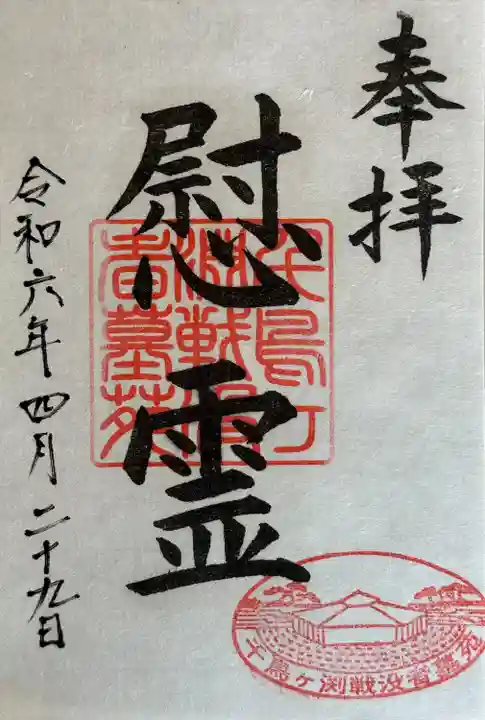 奉拝
慰霊
千鳥ヶ淵戦没者墓苑
令和六年四月二十九日
千鳥ヶ渕戦没者墓苑